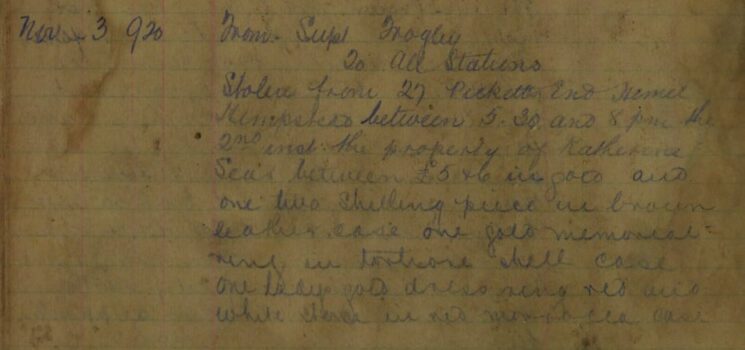 Nov 3 920 From Supt Frogley
To All Stations
Stolen from 27 Picketts End Hemel
Hempstead between 5.30 and 8 pm the
2nd inst the property of Katherine
Sears between £5 & 6 in gold and
one two Shilling piece in brown
leather case one gold memorial
ring in tortoise shell case
one lady gold dress ring red and
white stones in red case